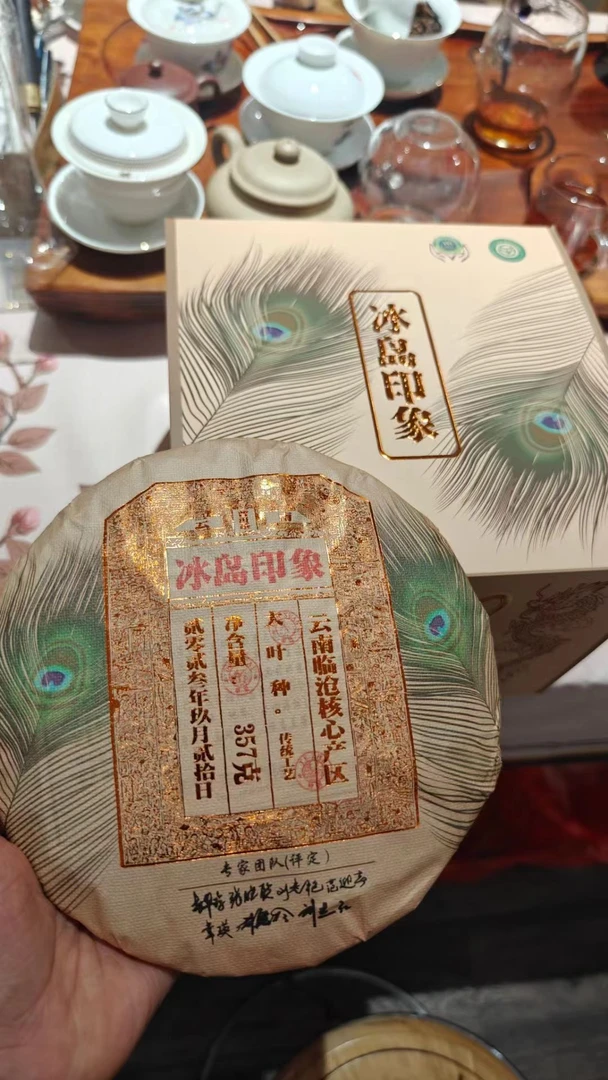 冰岛印象
冰岛印象
云南临沧核心产区
大叶种。 传统工艺
净含量: 357克
贰零贰叁年玖月贰拾日
专家团队(评定)